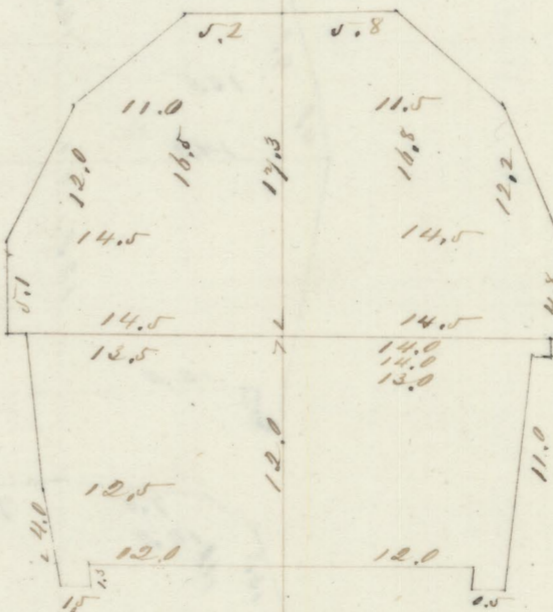 5.2 5.8
11.0 11.5
12.0 16.5 17.3 16.8 12.2
14.5 14.5
5.1
14.5 14.5
13.5 14.0
14.0
13.0
12.0 11.0
12.5
4.0
12.0 12.0
1.5
1.5 0.5